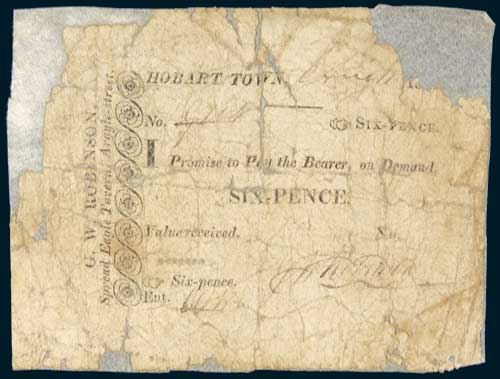 G. W. ROBINSON,
Spread Eagle Tavern, Argyle-street.
HOBART TOWN,
No.
SIX-PENCE.
I Promise to Pay the Bearer, on Demand
SIX-PENCE.
Value received.
Six-pence.
Ent.